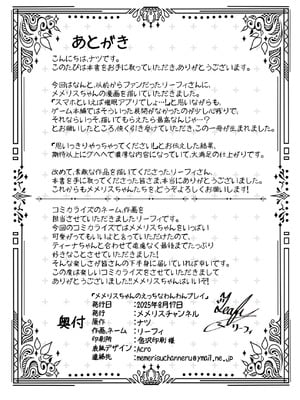 あとがき
こんにちは、ナツです。
このたびは本書をお手に取っていただき、ありがとうございます。
今回はなんと、以前からファンだったリーフィさんに、
メメリスちゃんの漫画を描いていただきました。
「スマホといえば催眠アプリでしょ…」と思いながらも、
ゲーム本編ではそういった展開がなかったのが少し心残りで、
それならいっそ、描いてもらえたら最高なんじゃ…？
とお願いしたところ、快く引き受けていただき、この一冊が生まれました。
「思いっきりやっちゃってください！」とお伝えした結果、
期待以上にグヘヘで濃厚な内容になっていて、大満足の仕上がりです。
改めて、素敵な作品を描いてくださったリーフィさん、
本書を手に取ってくださった皆さま、本当にありがとうございました。
これからもメメリスちゃんたちを、どうぞよろしくお願いします！
コミカライズのネーム、作画を
担当させていただきましたリーフィです。
今回のコミカライズではメメリスちゃんをいっぱい
可愛がってもいいよと言っていただけたので、
ティーナちゃんと合わせて遠慮なく最後までたっぷり
好きなことさせていただきました！
そんな楽しさが皆さんの下半身に届いていれば幸いです。
この度は楽しいコミカライズをさせていただきまして
ありがとうございました!!メメリスちゃんはいいぞ!
奥付
『メメリスちゃんのえっちなわんわんプレイ』
発行日：2025年8月17日
発行：メメリスチャンネル
原作：ナツ
作画ネーム：リーフィ
印刷所：金沢印刷 様
表紙デザイン：Acro
連絡先：memerisuchanneru@ymail.ne.jp
Leafy
リーフィ